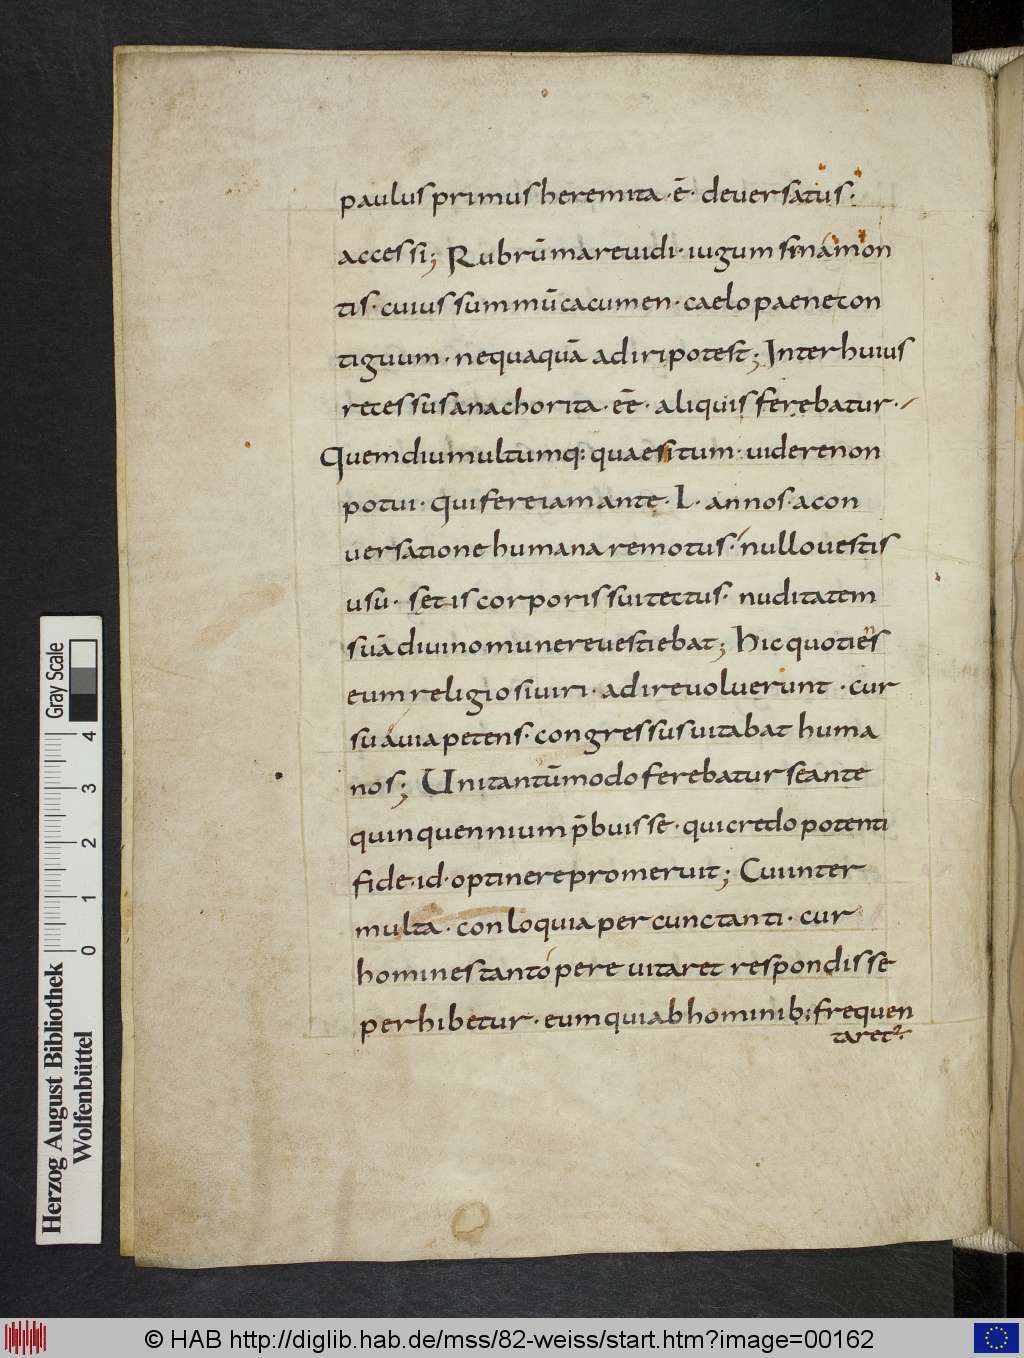 paulus primus heremita · ē · deversatus ·
accessi; Rubrū mare vidi · iugum sinai mon
tis · cuius summū cacumen · caelo paene con
tiguum · nequaquā adiri potest; Inter huius
recessus anachorita · eē · aliquis ferebatur ·
Quem diu multumq: quaesitum · videre non
potui · qui fere iam ante · L · annos · a con
versatione humana remotus · nullo vestis
usu · setis corporis sui tectus · nuditatem
suā divino munere vestiebat; hic quotiens
eum religiosi viri · adire voluerunt · cur
su avia petens · congressus vitabat huma
nos; Uni tantūmodo ferebatur se ante
quinquennium p̄buisse · qui credo potenti
fide · id · optinere promeruit; Cui inter
multa · conloquia percunctanti · cur
homines tantopere vitaret respondisse
perhibetur · eum qui ab hominib: frequen
taret²·
Herzog August Bibliothek
Wolfenbüttel
0 1 2 3 4
Gray Scale
© HAB http://diglib.hab.de/mss/82-weiss/start.htm?image=00162